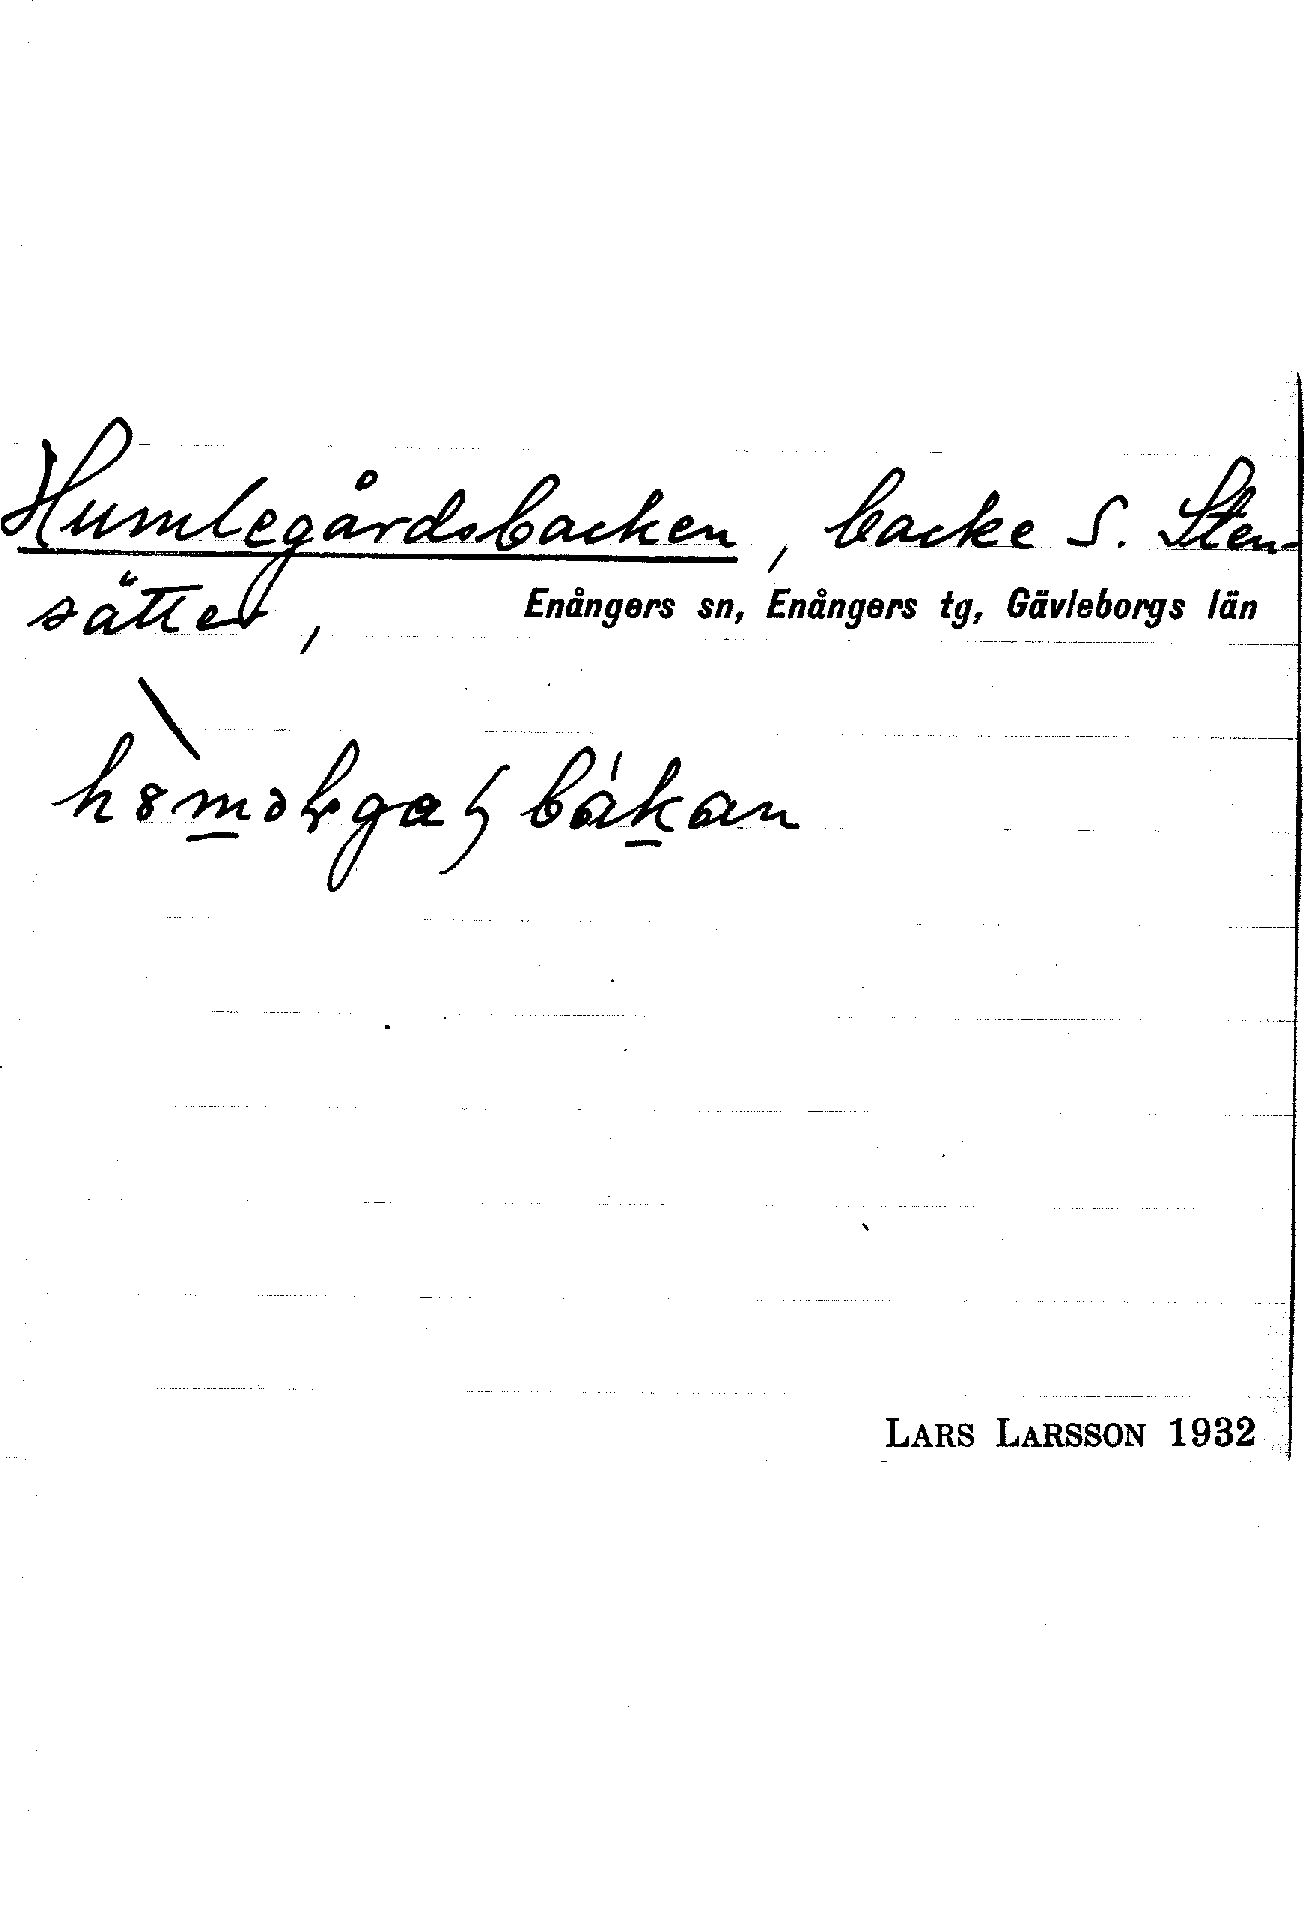 Humlegårdsbacken, backe S. Sten-
sätter,
Enångers sn, Enångers tg, Gävleborgs län
LARS LARSSON 1932